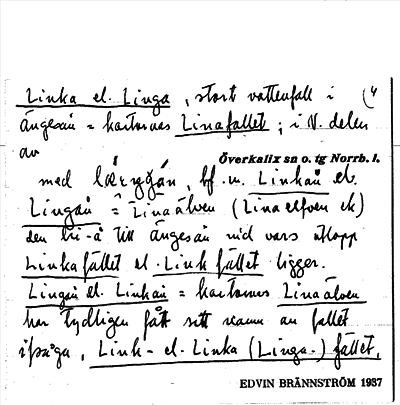 Linka el. Linga, stort vattenfall i
ängesån = kartornas Linafallet; i V. delen
av
Överkalix sn o. tg Norrb. l.
med bf. n. Linkån el.
Lingån = Linaälven (Linaelfven ek)
den bi-å till ängesån vid vars utlopp
Linkafället el. Linkfället ligger.
Lingån el. Linkån = kartornas Linaälven
har tydligen fått sitt namn av fallet
ifråga, Link- el. Linka (Linga-) fället.
EDVIN BRÄNNSTRÖM 1937